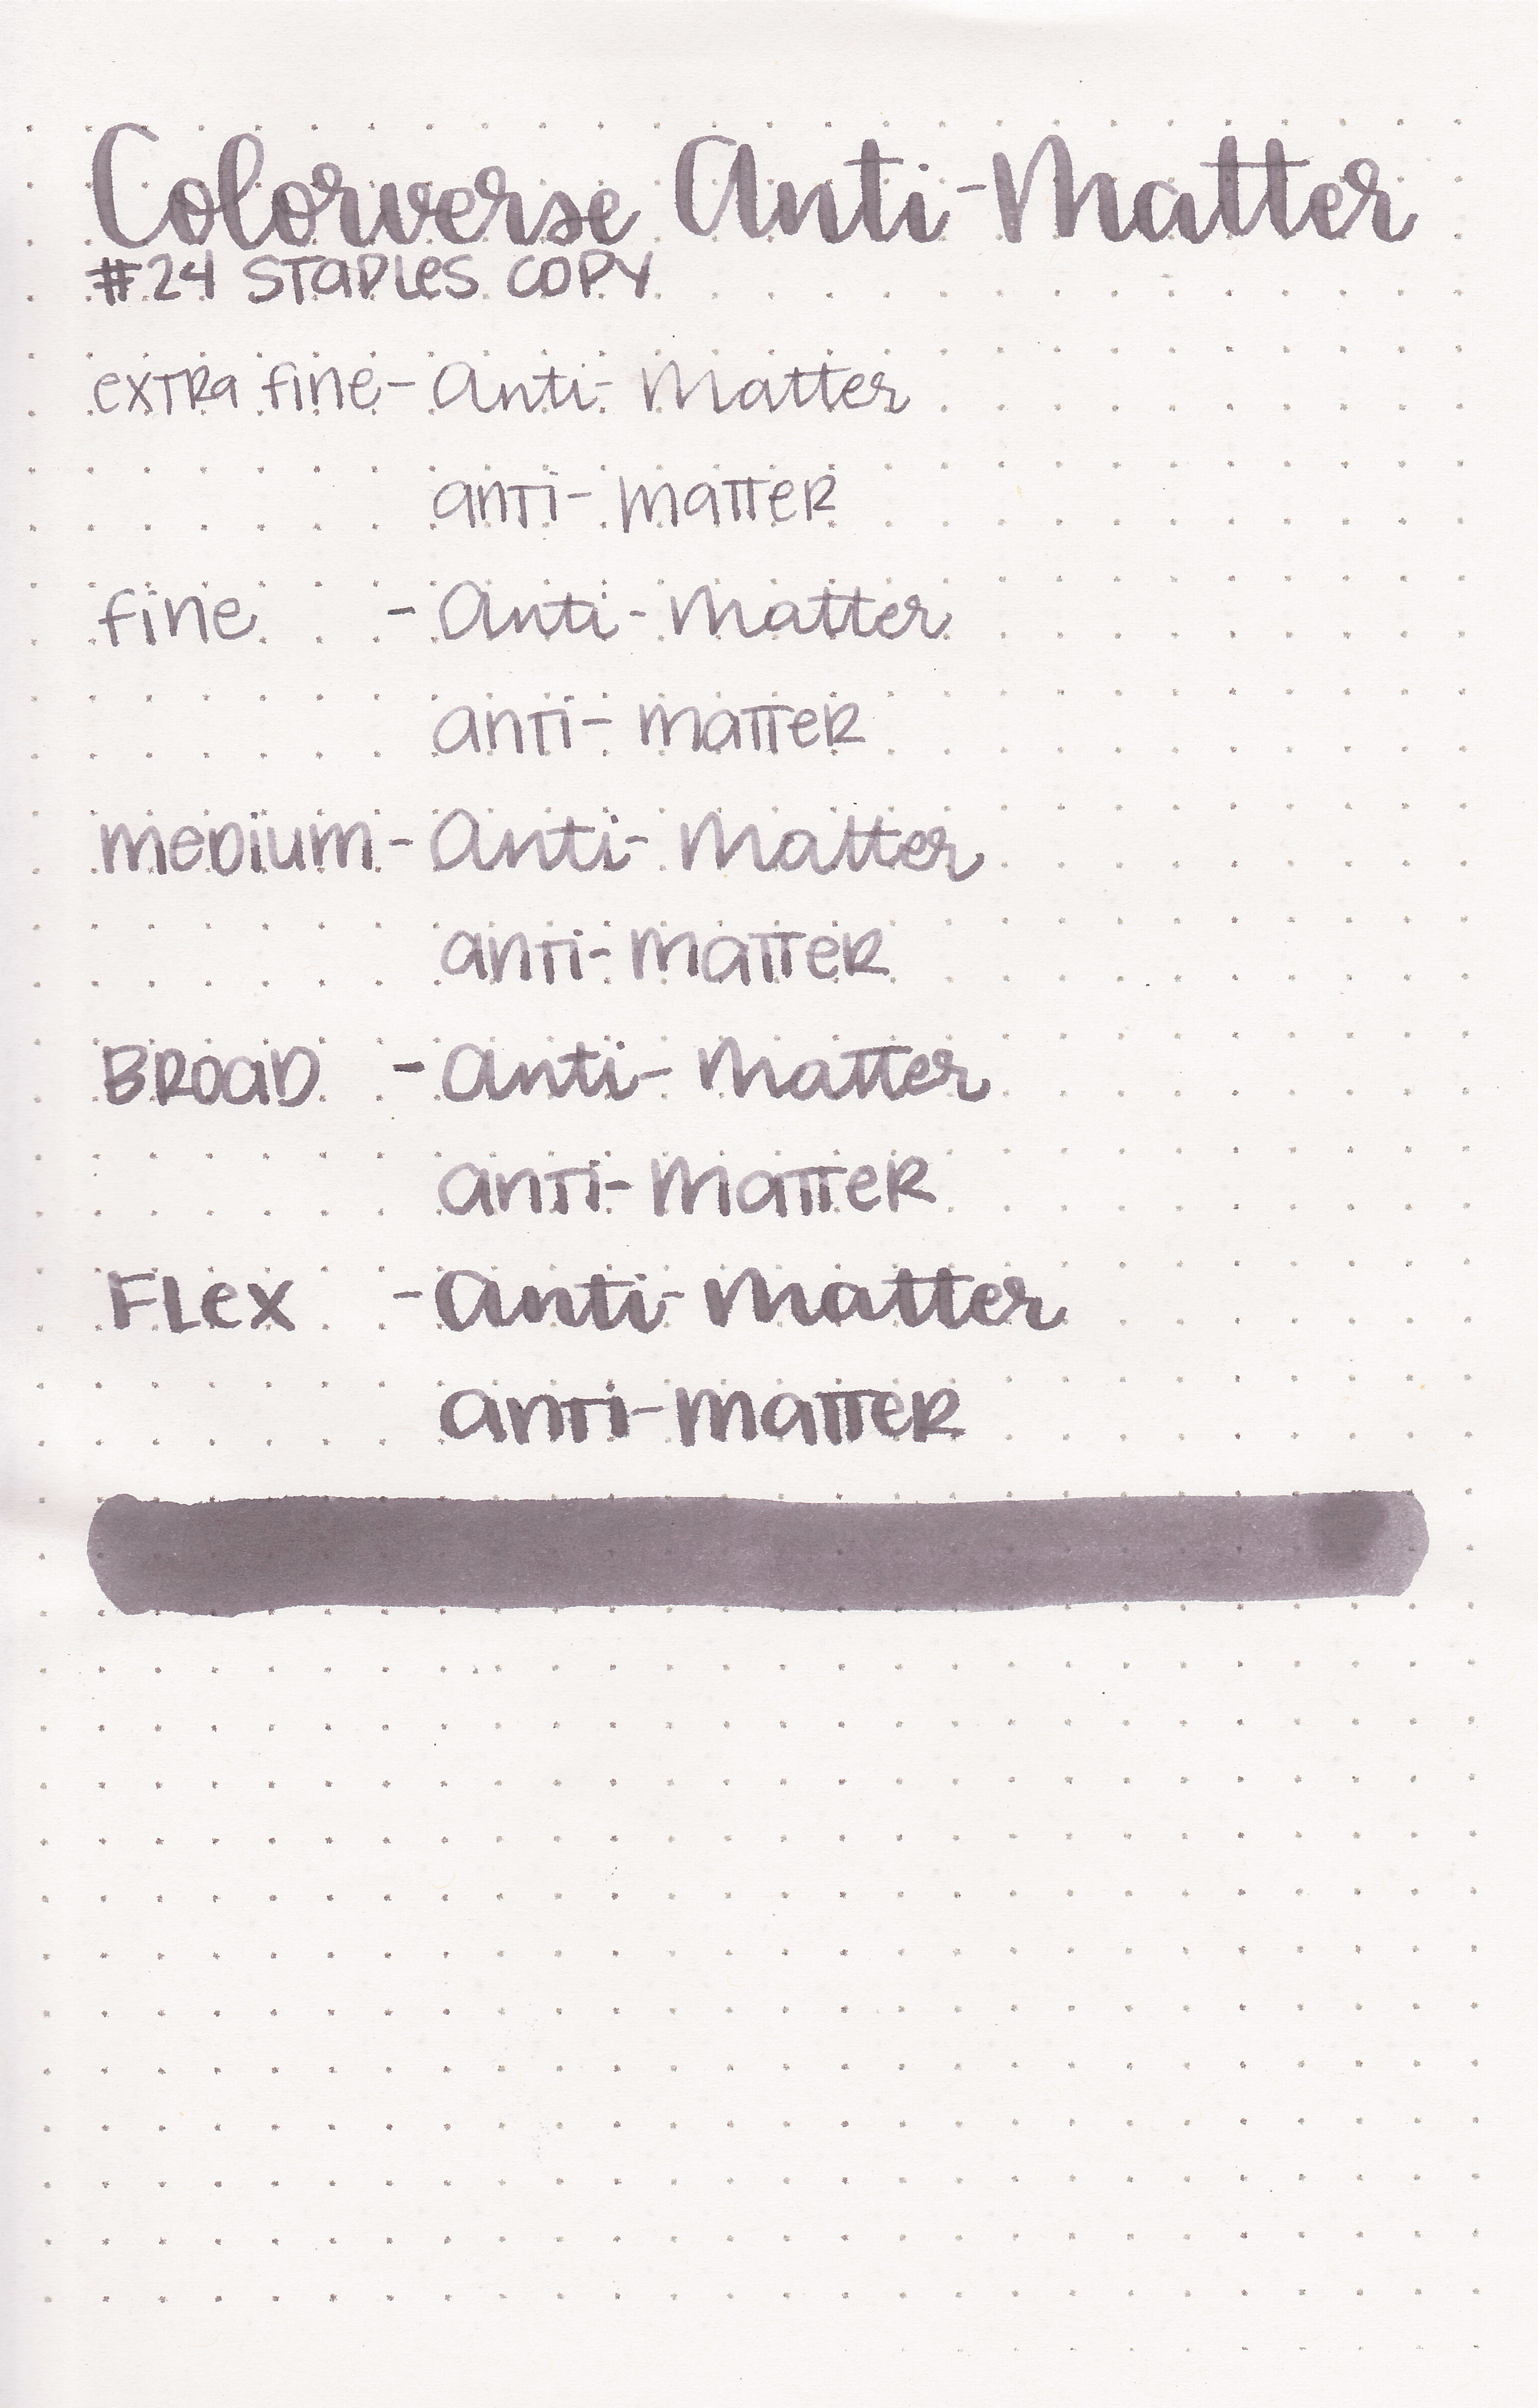 Colorverse Anti-Matter
#24 STaPLeS COPY
exTRa fine - Anti-Matter
anTi-maTTeR
fine - Anti-Matter
anTi-maTTeR
meDium - Anti-Matter
anTi-maTTeR
BROaD - Anti-Matter
anTi-maTTeR
FLex - Anti-Matter
anTi-maTTeR